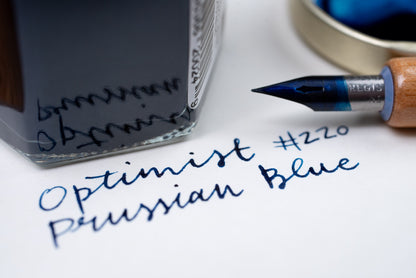 Optimist #220
Prussian Blue